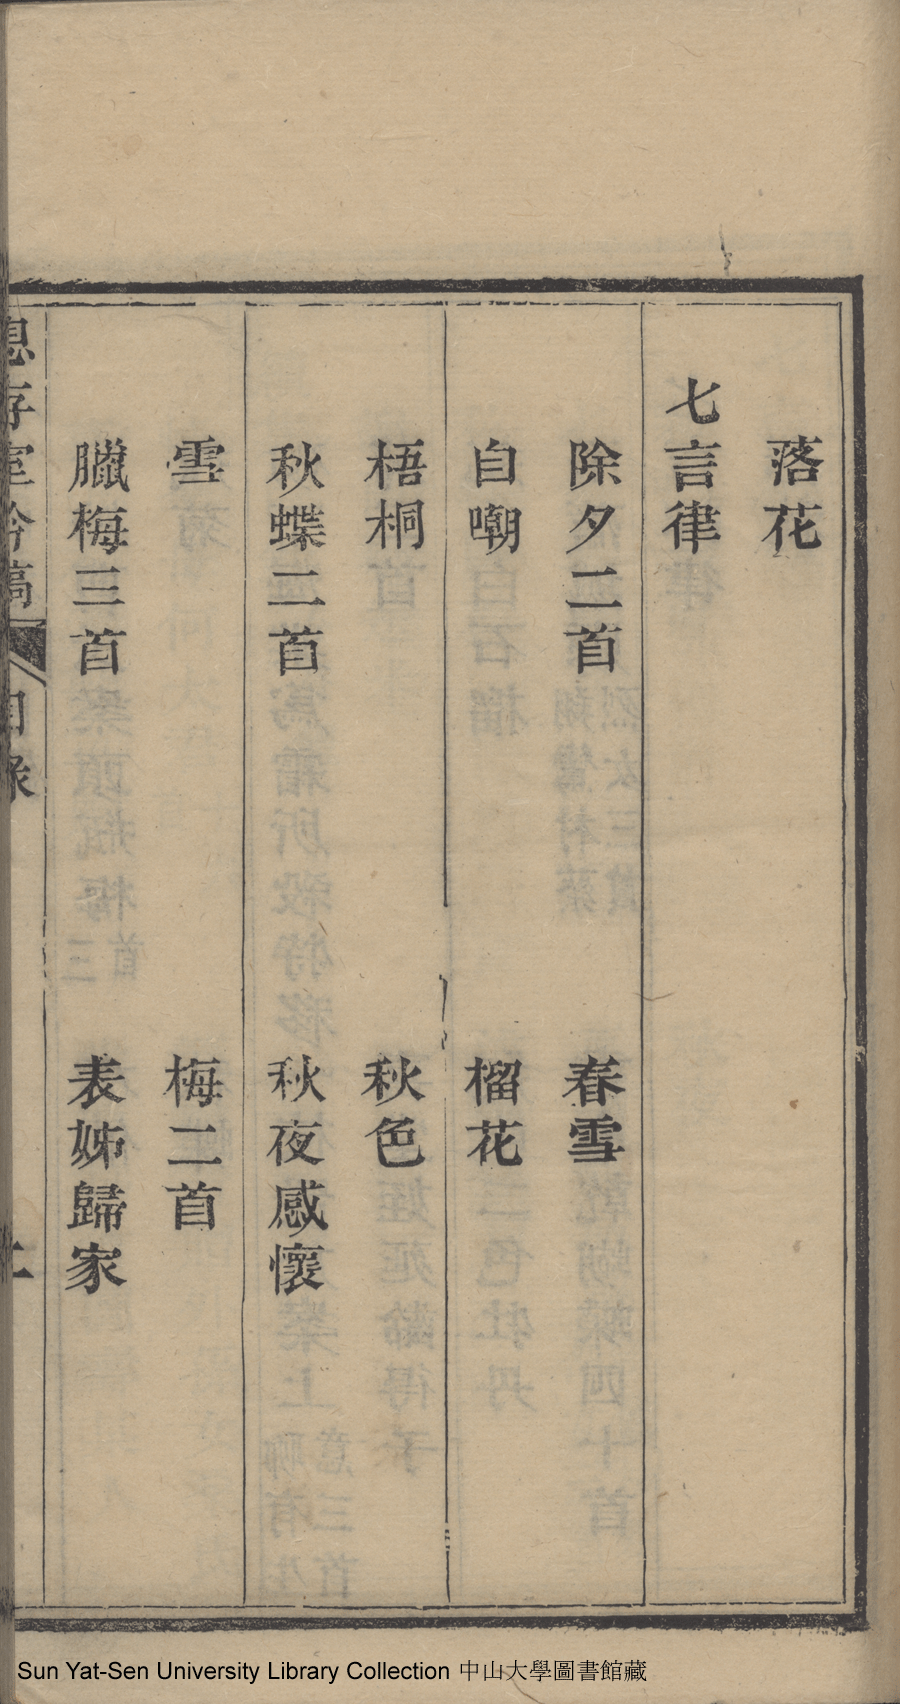 落花
七言律
除夕二首　春雪
自嘲　榴花
梧桐　秋色
秋蝶二首　秋夜感懷
雪　梅二首
臘梅三首　表姊歸家
存室吟稿　目錄
Sun Yat-Sen University Library Collection 中山大學圖書館藏